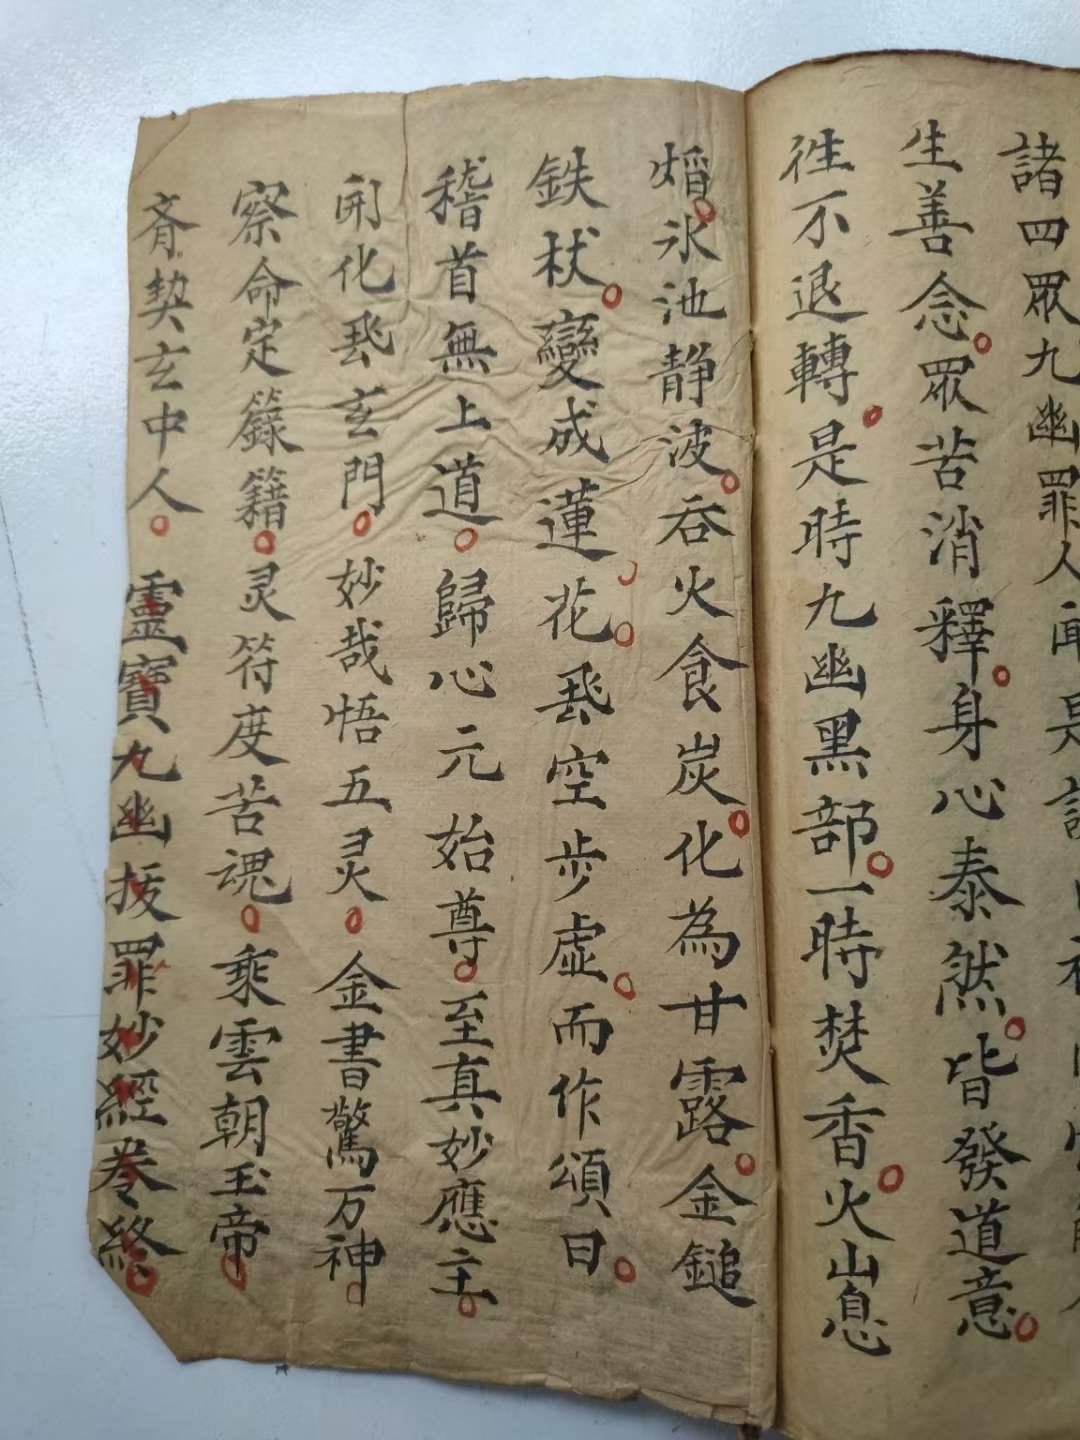 諸四眾九幽罪人聞是說
生善念○眾苦消釋○身心泰然○皆發道意○
徃不退轉○是時九幽黑部○一時焚香○火山息
熖○氷池静波○吞火食炭○化為甘露○金鎚
鉄杖○變成蓮花○飛空步虛○而作頌曰○
稽首無上道○歸心元始尊○至真妙應主○
開化飛玄門○妙哉悟五灵○金書驚万神○
察命定籙籍○灵符度苦魂○乘雲朝玉帝○
齊契玄中人○靈寶九幽拔罪妙經卷終○